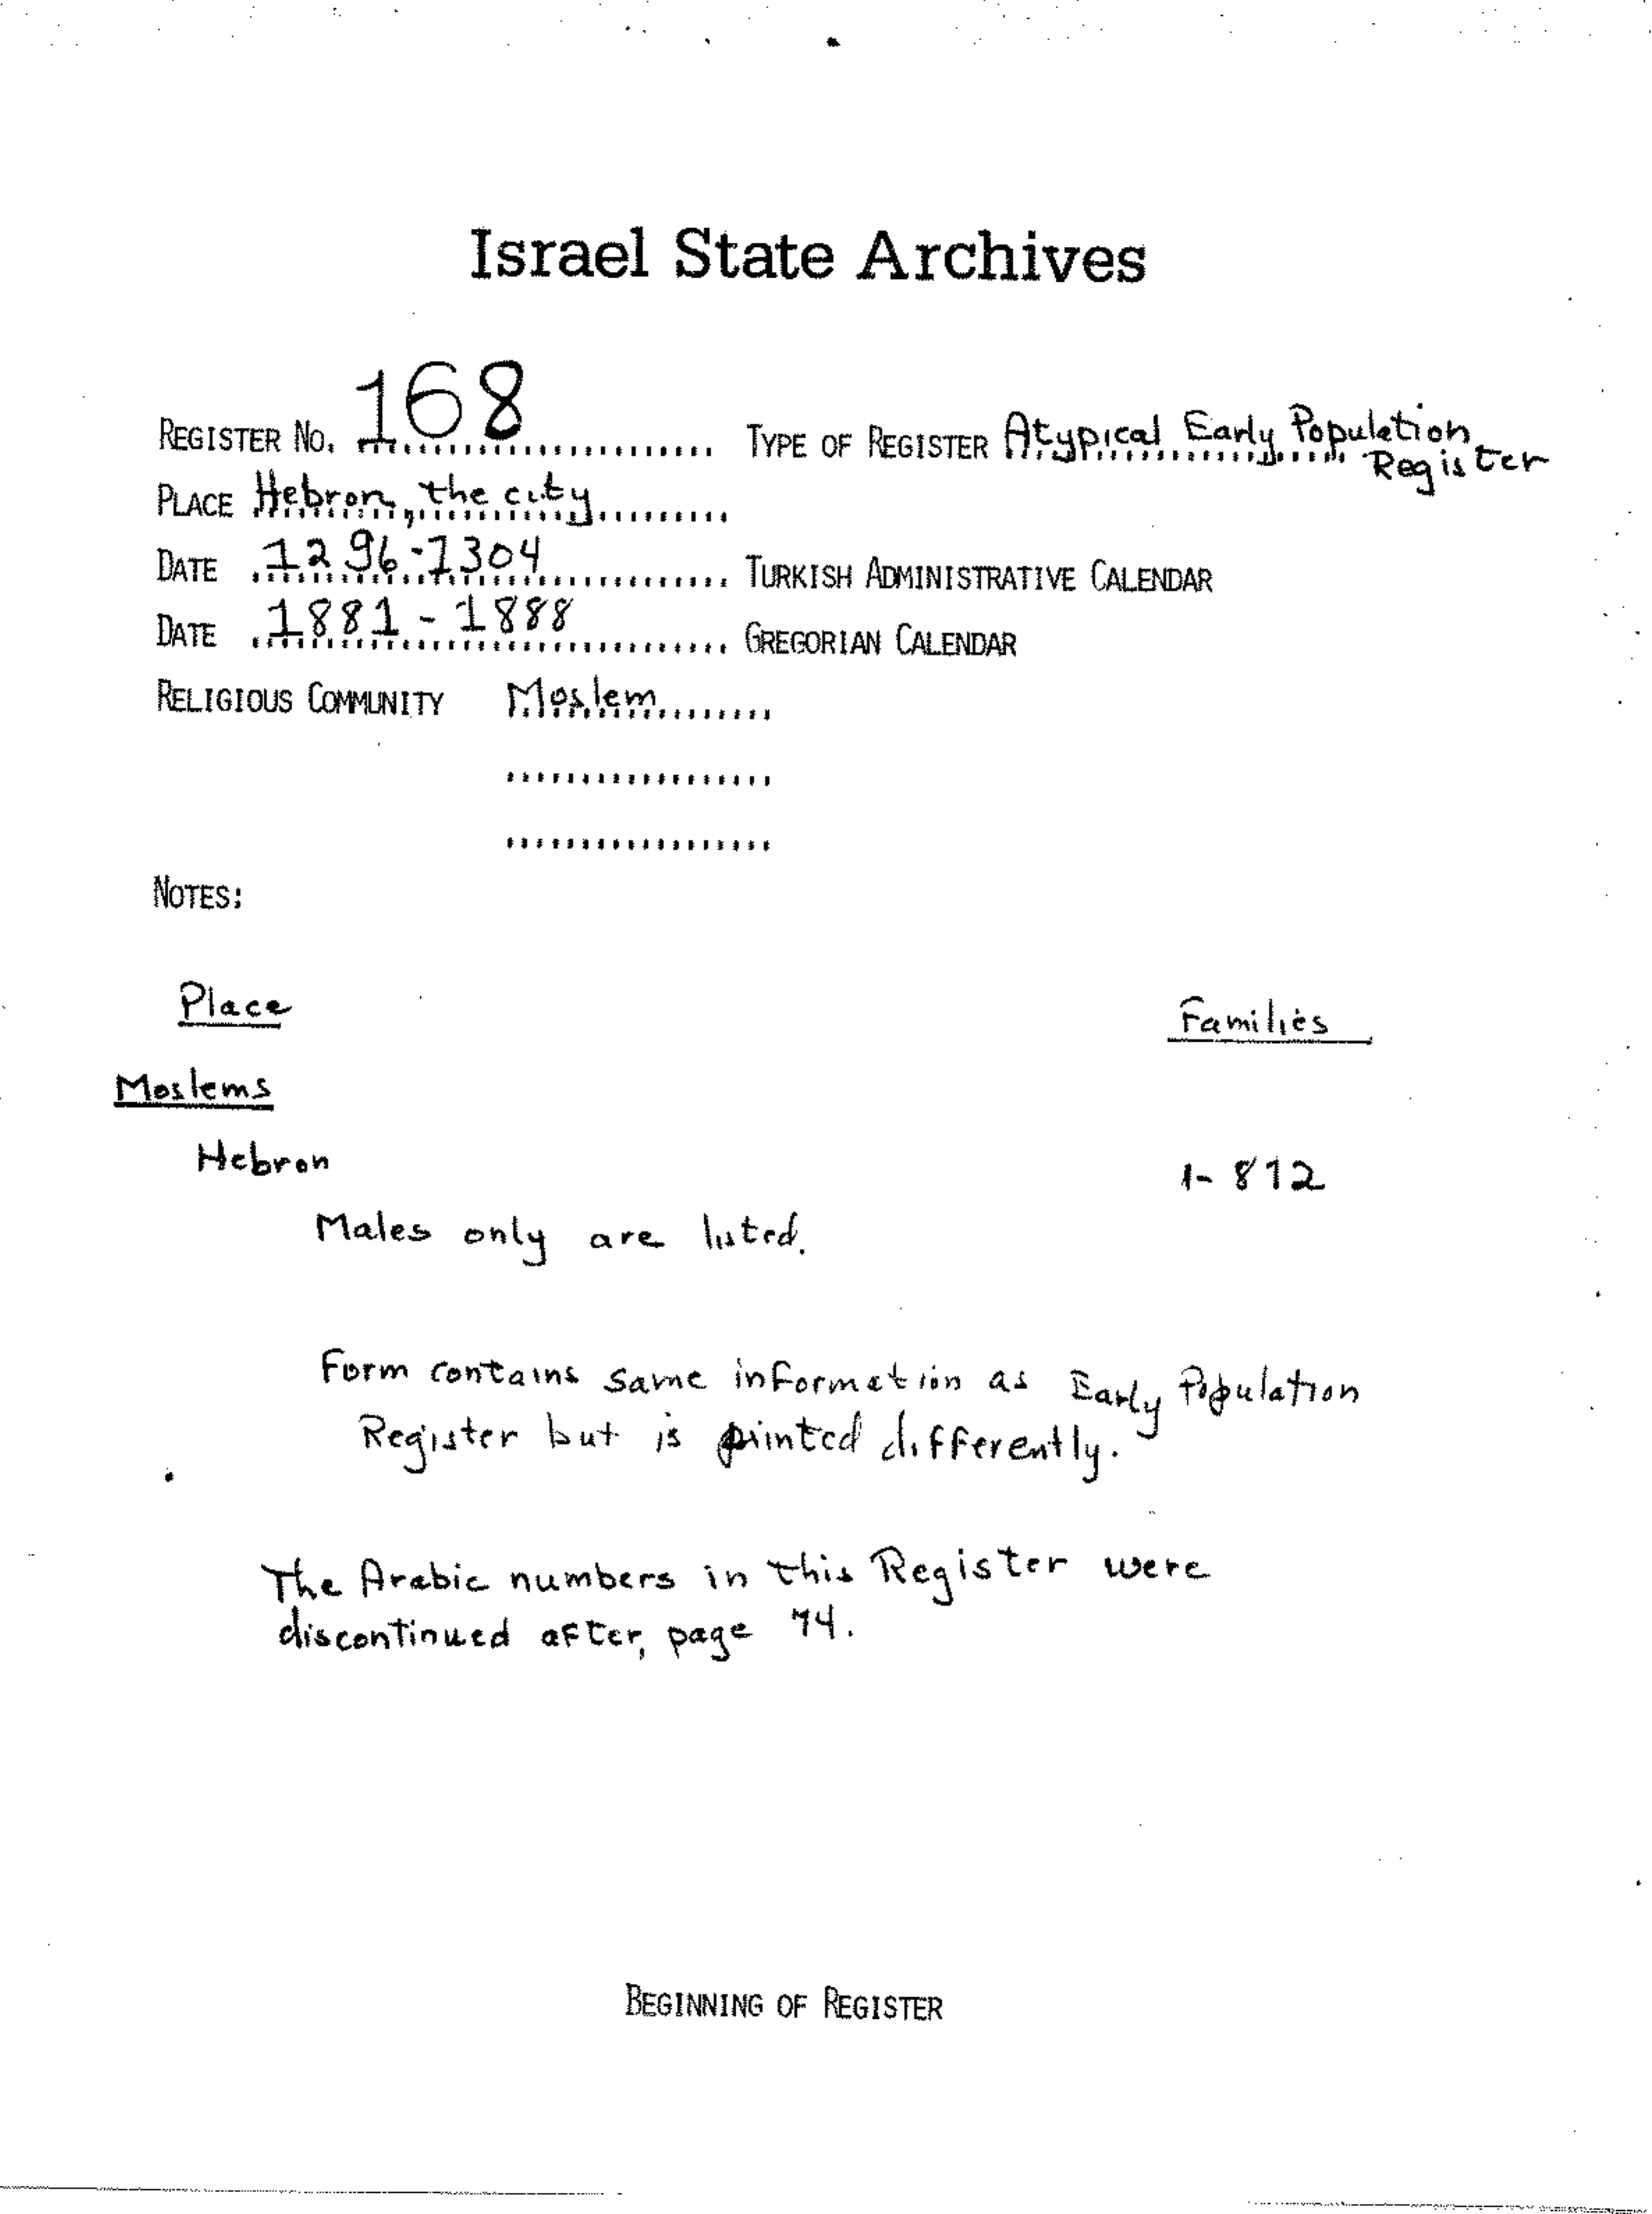 Israel State Archives
REGISTER NO. 168 TYPE OF REGISTER Atypical Early Population
Register
PLACE Hebron, the city
DATE 1296-1304 TURKISH ADMINISTRATIVE CALENDAR
DATE 1881 - 1888 GREGORIAN CALENDAR
RELIGIOUS COMMUNITY Moslem
NOTES:
Place Families
Moslems
Hebron 1- 812
Males only are listed.
Form contains same information as Early Population
Register but is printed differently.
The Arabic numbers in this Register were
discontinued after, page 74.
BEGINNING OF REGISTER